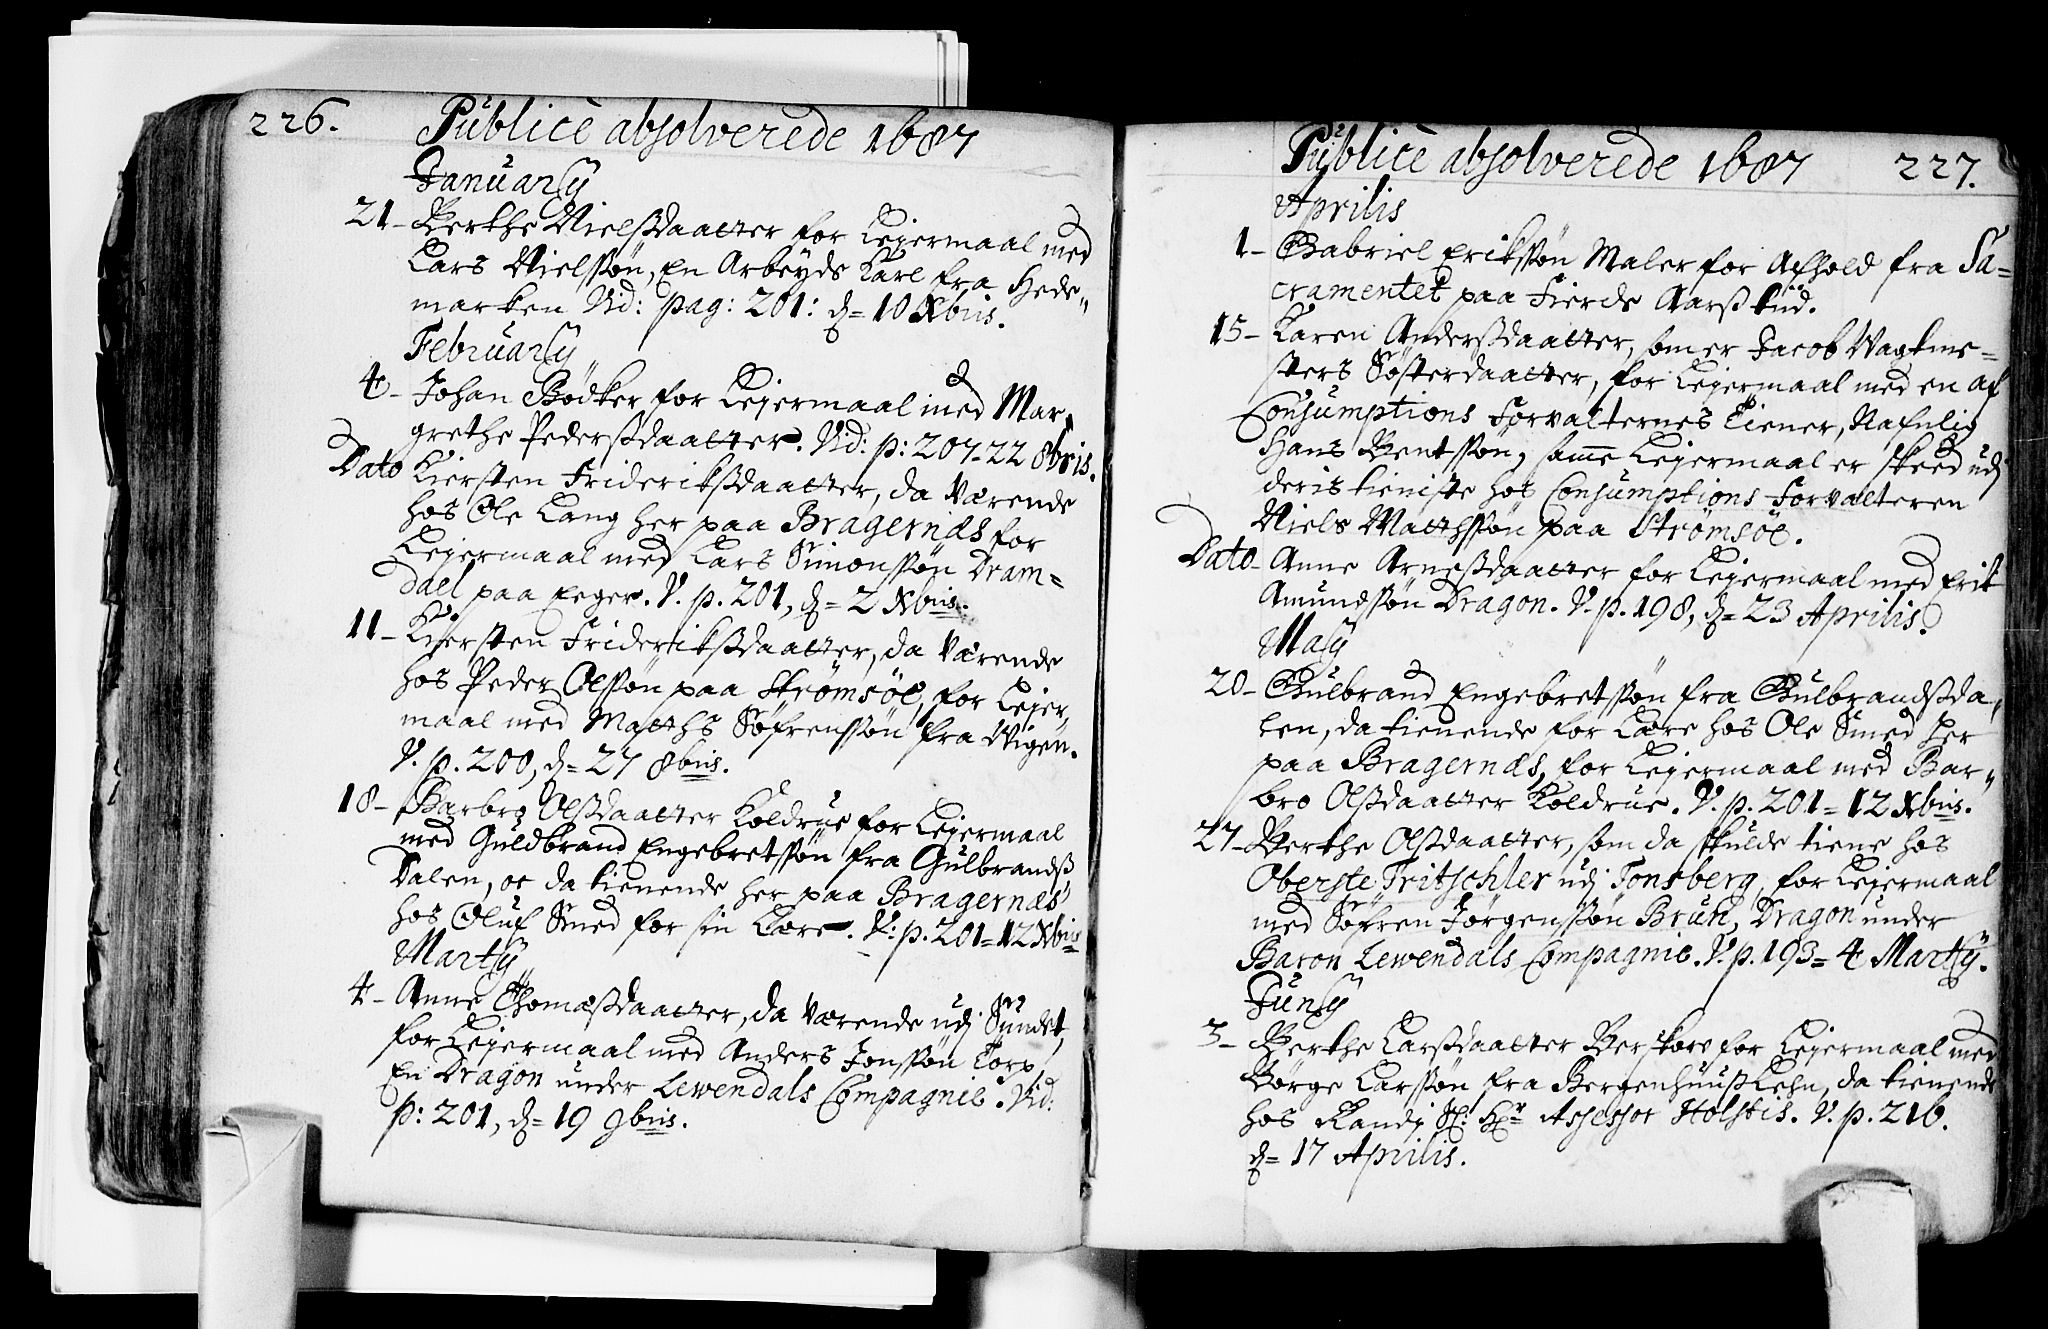 226. Publicè absolverede 1687
January
21- Berthe Nielßdaatter for Leyermaal med
Lars Nielssøn, En Arbeyds Karl fra Hede"
marken Vid: pag: 201: d= 10 Xbris.
February
4- Johan Bødker for Leyermaal med Mar"
grethe Pederßdaatter. Vid: p: 207-22 8bris.
Dato Kiersten Frideriksdaatter, da Værende
hos Ole Lang her paa Bragernæs for
Leyermaal med Lars Simonssøn Dram=
dael paa Eeger. V. p. 201, d= 2 Xbris.
11- Kiersten Frideriksdaatter, da Værende
hos Peder Olssøn paa Strømsøe, for Leyer"
maal med Matths Søfrenssøn fra Vigen.
V. p. 200, d= 27 8bris.
18- Barbro Olßdaatter Koldrue for Leyermaal
med Guldbrand Engebretssøn fra Gulbrandß
Dalen, oc da tienende her paa Bragernæs
hos Oluf Smed for sin Lære. V: p. 201=12 Xbris
Martij
4- Anne Thomæßdaatter, da Værende udj Sundet,
for Leyermaal med Anders Jonssøn Torp
En Dragon under Lewendals Compagnie. Vid:
p: 201, d= 19 9bris.
Publicè absolverede 1687 227.
Aprilis
1- Gabriel Erikssøn Maler for Afhold fra Sa=
cramentet paa Fierde Aarß tiid.
15- Karen Anderßdaatter, som er Jacob Vagtme=
sters Søsterdaatter, for Leyermaal med en af
Consumptions Forvalternes Tiener, Nafnlig
Hans Bentssøn, samme Leyermaal er skeed udj
deris tieniste hos Consumptions-Forvalteren
Niels Matthssøn paa Strømsøe.
Dato- Anne Arneßdaatter for Leyermaal med Erik
Amundssøn Dragon. V. p. 198, d= 23 Aprilis.
Maij
20- Gulbrand Engebretssøn fra Gulbrandßda"
len, da tienende for Lære hos Ole Smed her
paa Bragernæs, for Leyermaal med Bar"
bro Olßdaatter Koldrue. V. p. 201= 12 Xbris.
27- Berthe Olßdaatter, som da skulde tiene hos
Oberste Fritschler udj Tonsberg, for Leyermaal
med Søfren Jørgenssøn Brun, Dragon under
Baron Lewendals Compagnie. V. p. 193= 4 Martij.
Junij
3- Berthe Larßdaatter Berskow for Leyermaal med
Børge Larssøn fra Bergenhuuß Lehn, da tienende
hos Randj Sl: Hr Assessor Holstis. V. p. 216.
d= 17 Aprilis.